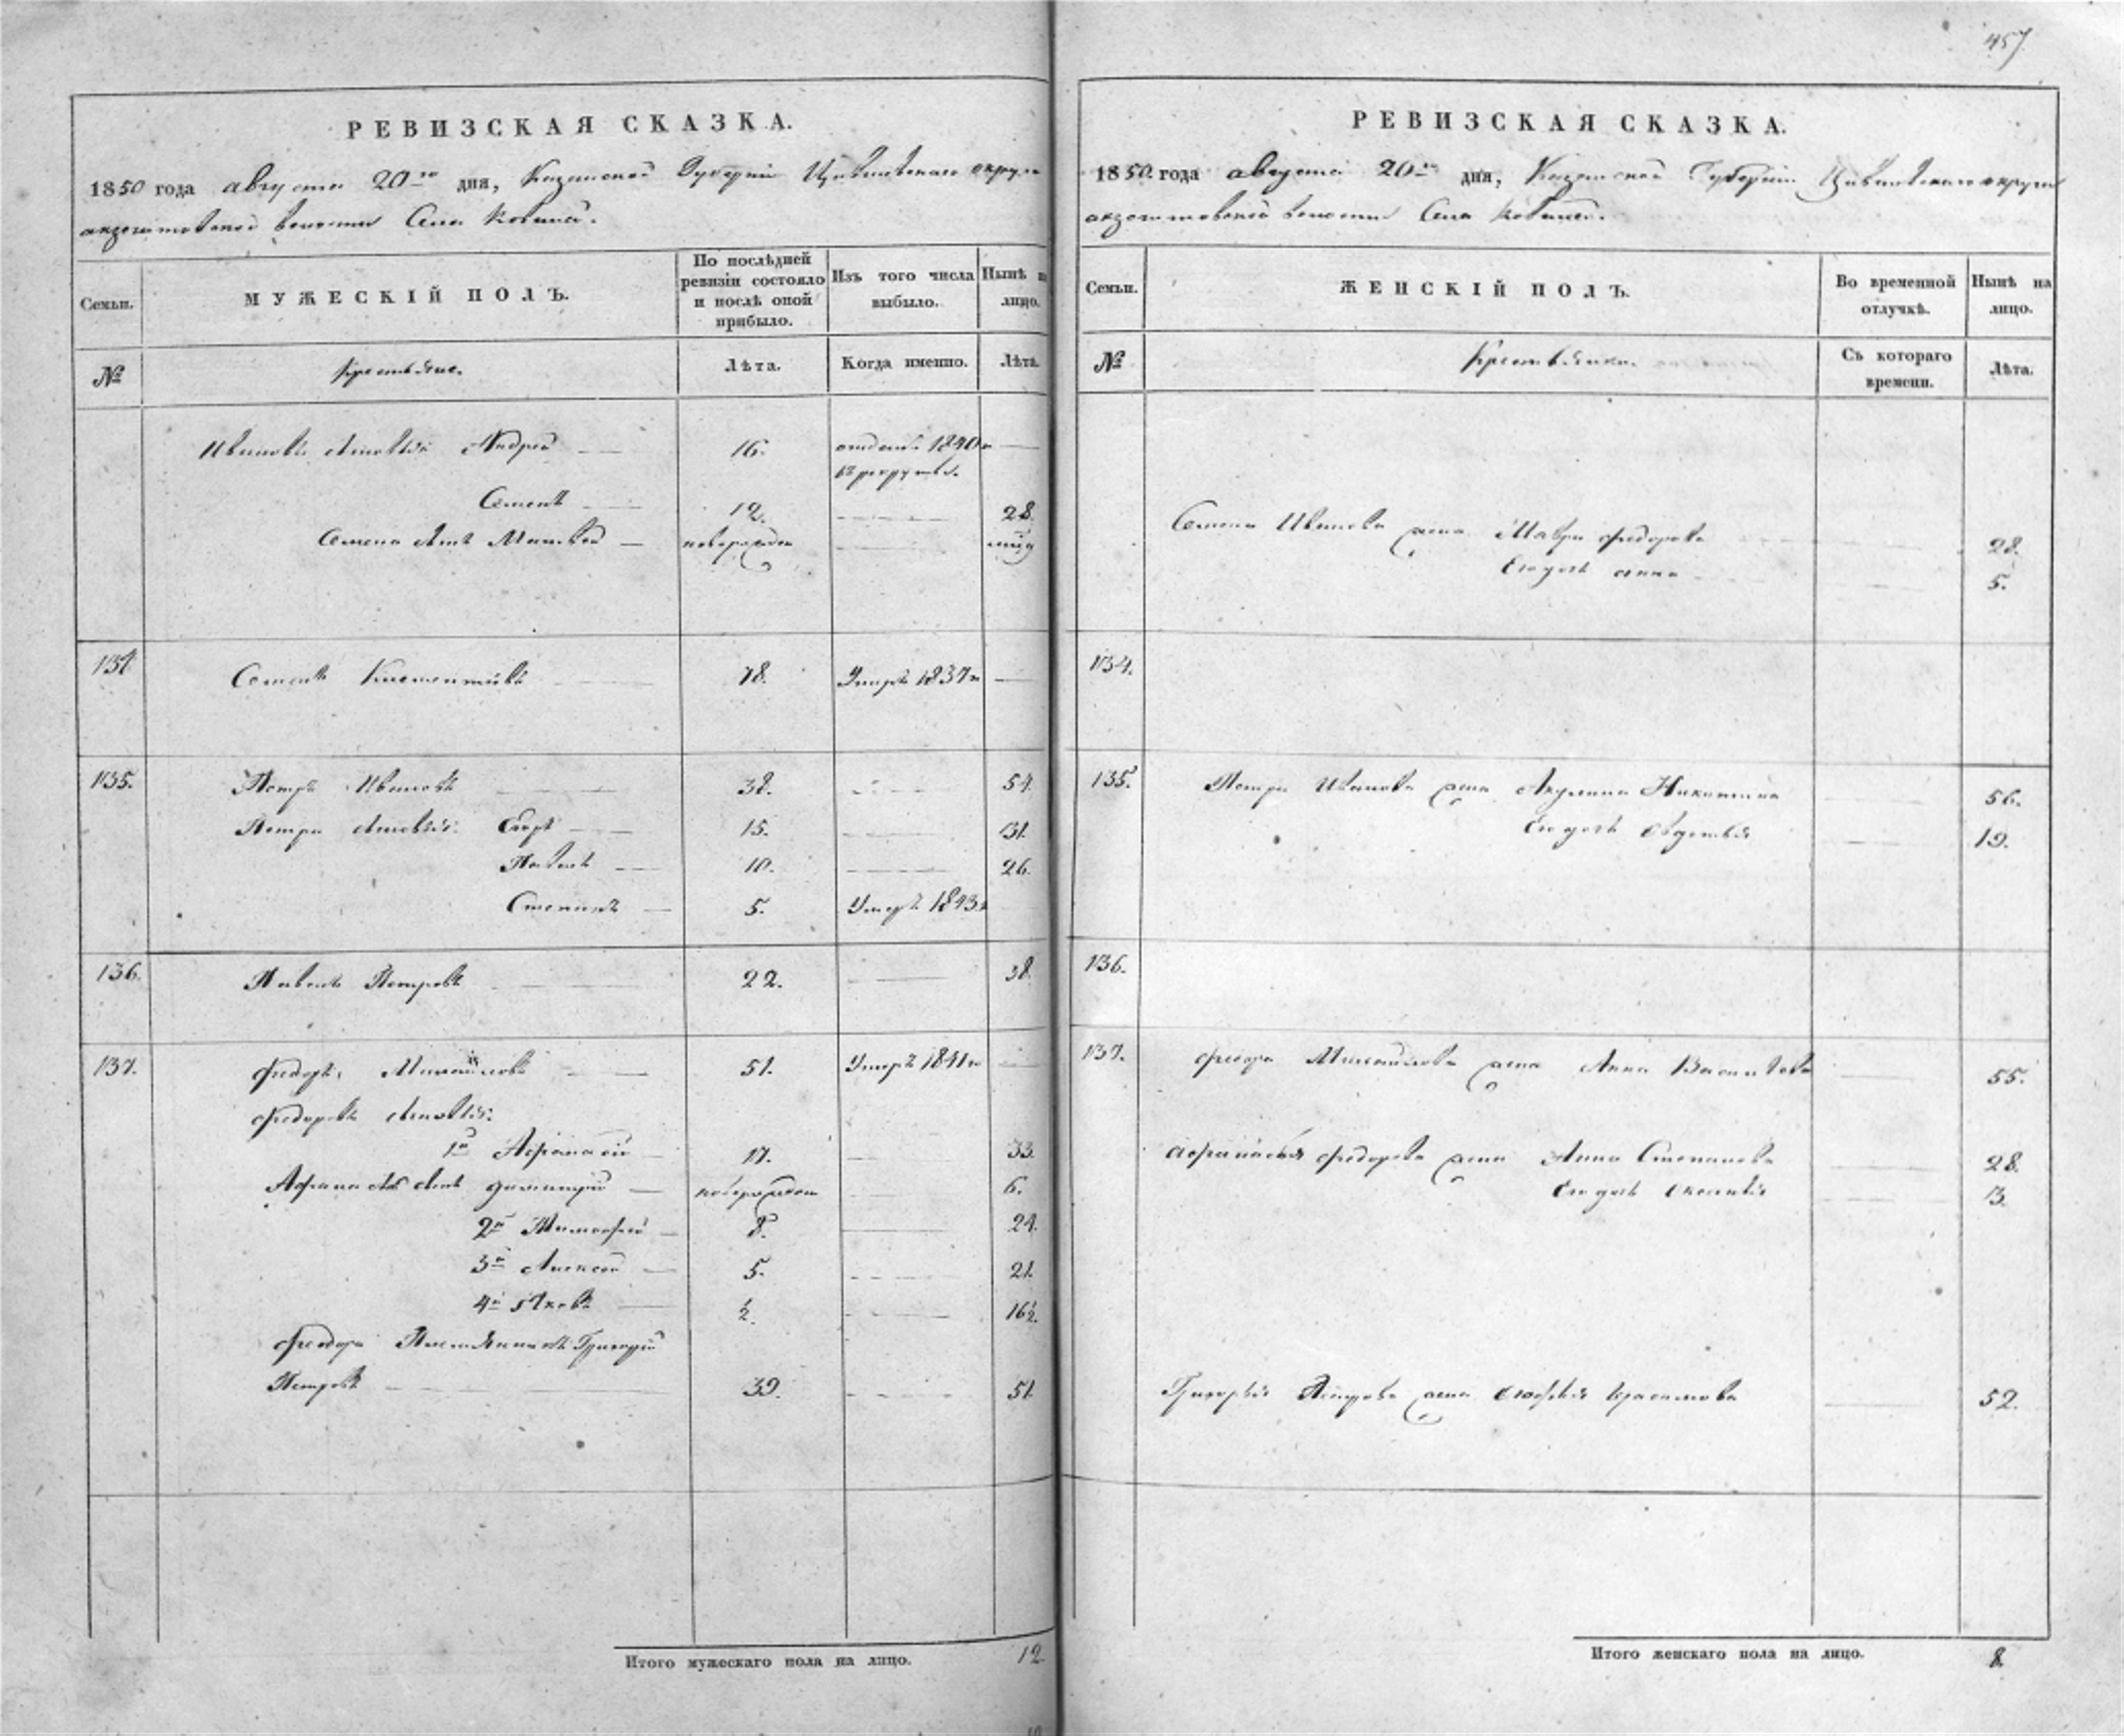 457
РЕВИЗСКАЯ СКАЗКА.
1850 года августа 20го дня, Казанской Губернии Цивильскаго округа
волости Села
Семьи.
МУЖЕСКІЙ ПОЛЪ.
По послѣдней ревизіи состояло и послѣ оной прибыло.
Изъ того числа выбыло.
Нынѣ на лицо.
№
Крестьяне.
Лѣта.
Когда именно.
Лѣта.
Ивановы сыновья Андрей 16. отданъ 1840 в рекруты.
Семенъ 12. 28.
Семена сынъ Матвей новорожден
134 Семенъ 78. Умеръ 1837
135. Петръ Ивановъ 38. 54.
Петра сыновья: Егоръ 15. 31.
Павелъ 10. 26.
Степанъ 5. Умеръ 1843
136. Павелъ Петровъ 22. 38.
137. Федоръ Михайловъ 51. Умеръ 1841
Федоровы сыновья:
1й Афанасий 17. 33.
Афанасья сынъ Димитрий новорожден 6.
2й Тимофей 8. 24.
3й Алексей 5. 21.
4й Яковъ ½. 16½.
Федора Племянникъ Григорий
Петровъ 39. 51.
Итого мужескаго пола на лицо. 12.
РЕВИЗСКАЯ СКАЗКА.
1850 года августа 20го дня, Казанской Губернии Цивильскаго округа
волости Села
Семьи.
ЖЕНСКІЙ ПОЛЪ.
Во временной отлучкѣ.
Нынѣ на лицо.
№
Крестьянки.
Съ котораго времени.
Лѣта.
Семена Иванова жена Мавра Федорова 28.
Ея дочь Анна 5.
134.
135. Петра Иванова жена Акулина Никитина 56.
Ея дочь Авдотья 19.
136.
137. Федора Михайлова жена Анна Васильева 55.
Афанасья Федорова жена Анна Степанова 28.
Ея дочь 3.
Григорья Петрова жена 52.
Итого женскаго пола на лицо. 8.